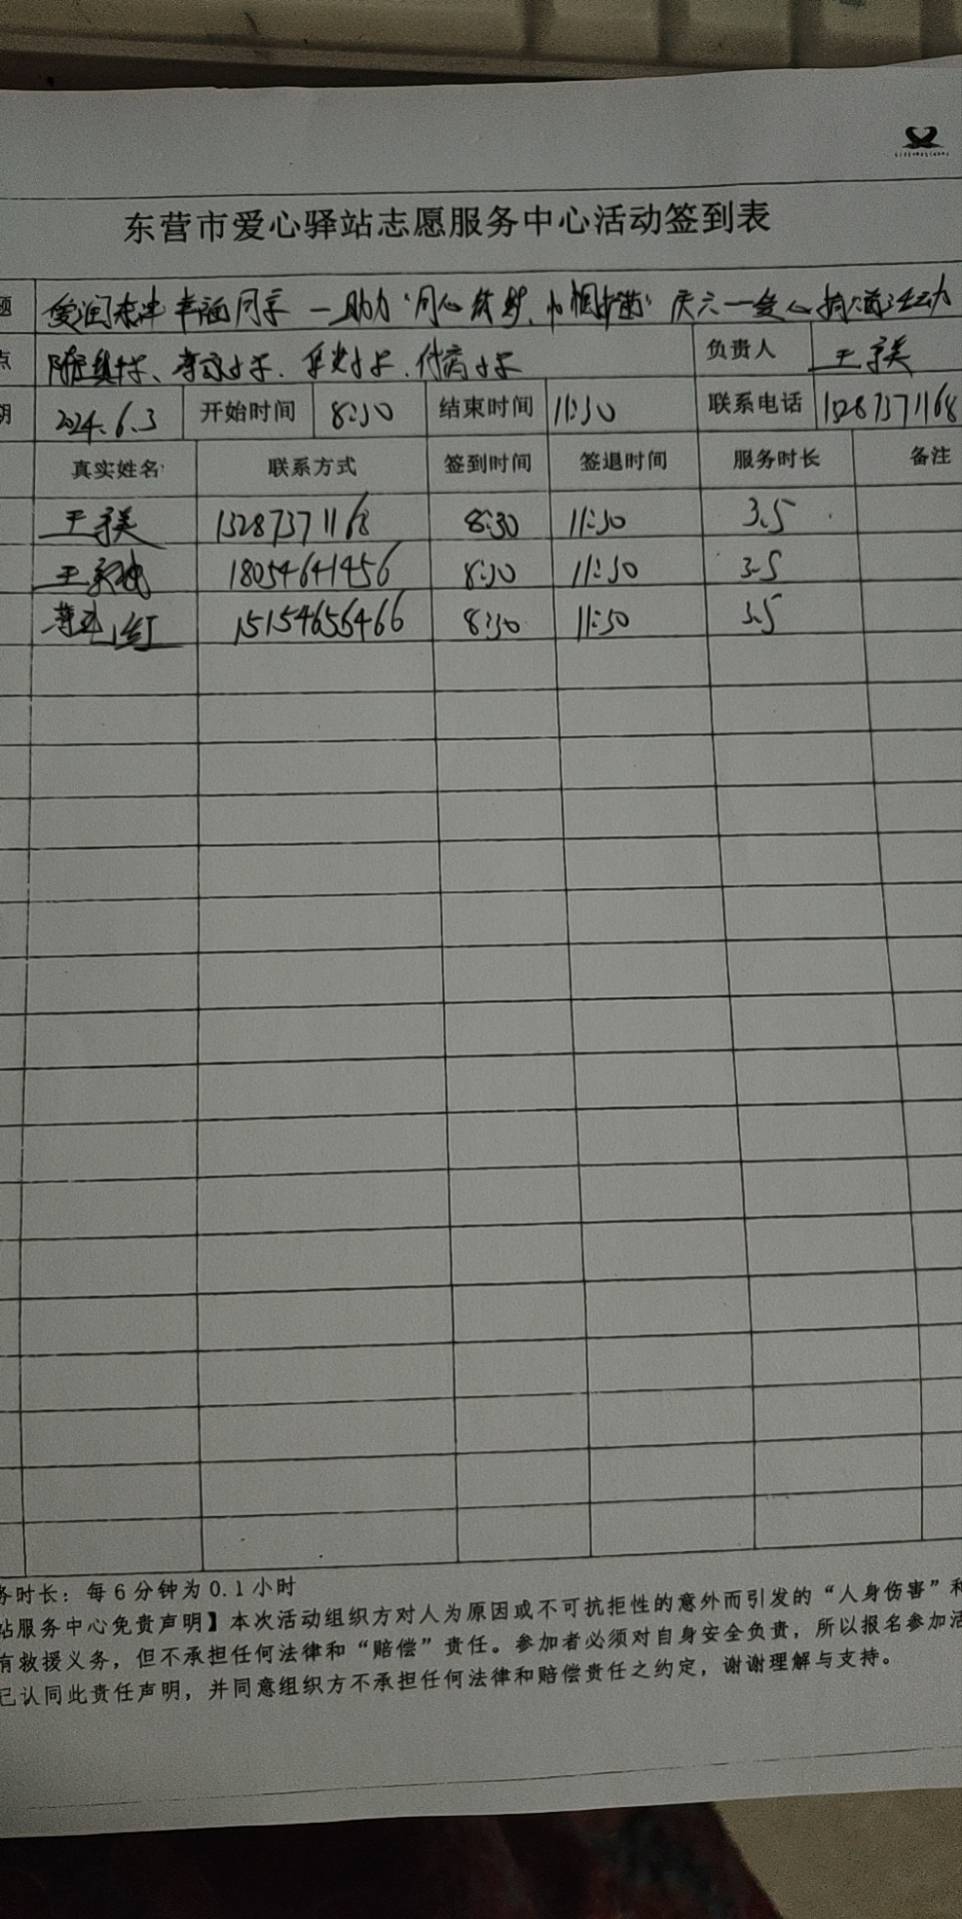 东营市爱心驿站志愿服务中心活动签到表
题 爱润东津 幸福同享 一助力“同心筑梦、巾帼 庆六一爱心捐 活动
点 负责人 王
期 2024.6.3 开始时间 8:30 结束时间 11:30 联系电话 15287371168
真实姓名 联系方式 签到时间 签退时间 服务时长 备注
王 15287371168 8:30 11:30 3.5
王 18054641456 8:30 11:30 3.5
红 15154656466 8:30 11:30 3.5
务时长：每6分钟为0.1小时
站服务中心免责声明】本次活动组织方对人为原因或不可抗拒性的意外而引发的“人身伤害”和
有救援义务，但不承担任何法律和“赔偿”责任。参加者必须对自身安全负责，所以报名参加活
已认同此责任声明，并同意组织方不承担任何法律和赔偿责任之约定，谢谢理解与支持。